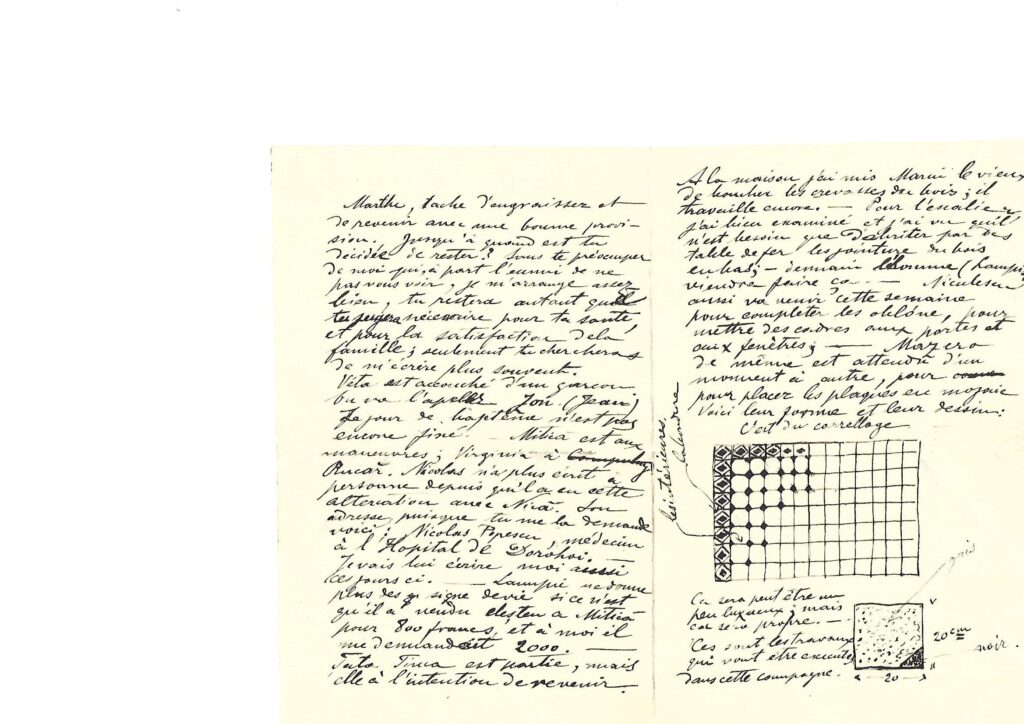 Marthe, tache d'engraissez et
de revenir avec une bonne provi-
sion. Jusqu'à quand est tu
décidée de rester? Sans te préocuper
de moi qui, à part l'ennui de ne
pas vous voir, je m'arrange assez
bien, tu restera autant que
nécessaire pour ta santé,
et pour la satisfaction de la
famille; seulement tu cherchera
de m'écrire plus souvent.
Vita est accouché d'un garcon
on va l'apeller Jon. (Jean)
Le jour de baptême n'est pas
encore fixé. — Mitica est aux
manœuvres; Virginia à
Rucăr. Nicolas n'a plus écrit a
personne depuis qu'il a eu cette
altercation avec Nică. Son
adresse, puisque tu me la demande
voici: Nicolas Popescu, médecin
à l'Hopital de Dorohoi.
Je vais lui écrire moi aussi
ces jours ci. — Lampié ne donne
plus des signe de vie, si ce n'est
qu'il a vendu a Mitica
pour 800 francs, et à moi il
me demandait 2000. —
Tata Tinca est partie, mais
elle à l'intention de revenir.
A la maison j'ai mis Marin le vieux
de boucher les crevasses du bois; il
travaille encore. — Pour l'escalier
j'ai bien examiné et j'ai vu qu'il
n'est besoin que d'abriter par des
table de fer les jointure du bois
en bas; — demain l'homme (Lampié)
viendra faire ça. — Niculescu
aussi va venir cette semaine
pour completer les oblône, pour
mettre des cadres aux portes et
aux fenêtres; — Mazero
de même est attendu d'un
moment à autre, pour
pour placer les plaques en mozaic
Voici leur forme et leur dessin:
C'est du carrelage
les intérieures
la bordure
Ca sera peut être un
peu luxueux; mais
car sera propre. —
Ces sont les travaux
qui vont être executés
dans cette campagne.
gris
20 cm
noir.
20